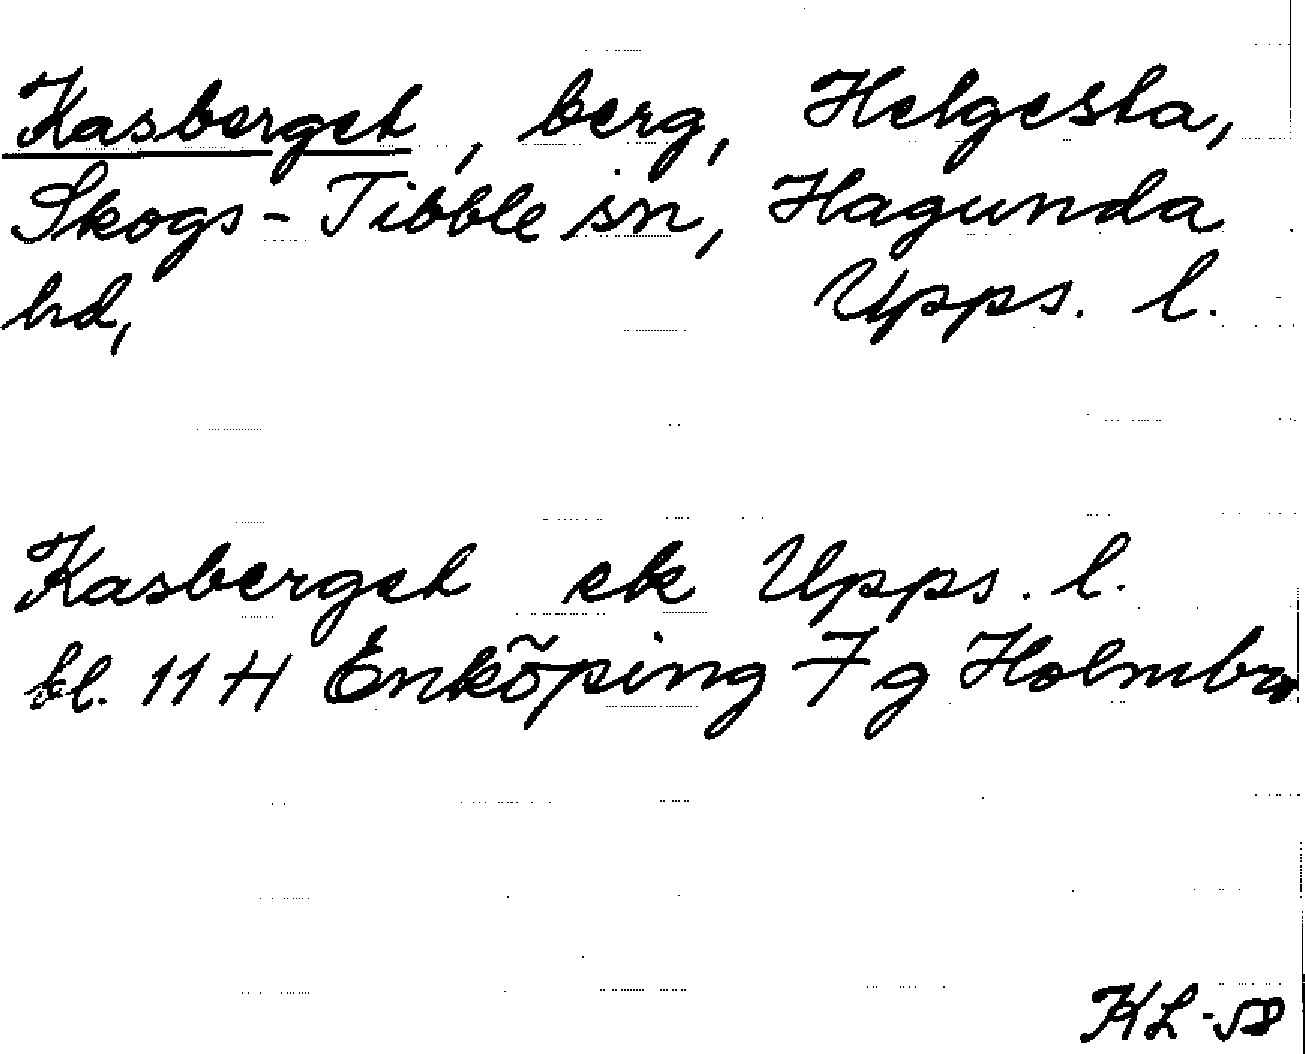 Kasberget, berg, Helgesta,
Skogs-Tibble sn, Hagunda
hd, Upps. l.
Kasberget ek Upps. l.
bl. 11 H Enköping 7 g Holmbro
KL-58